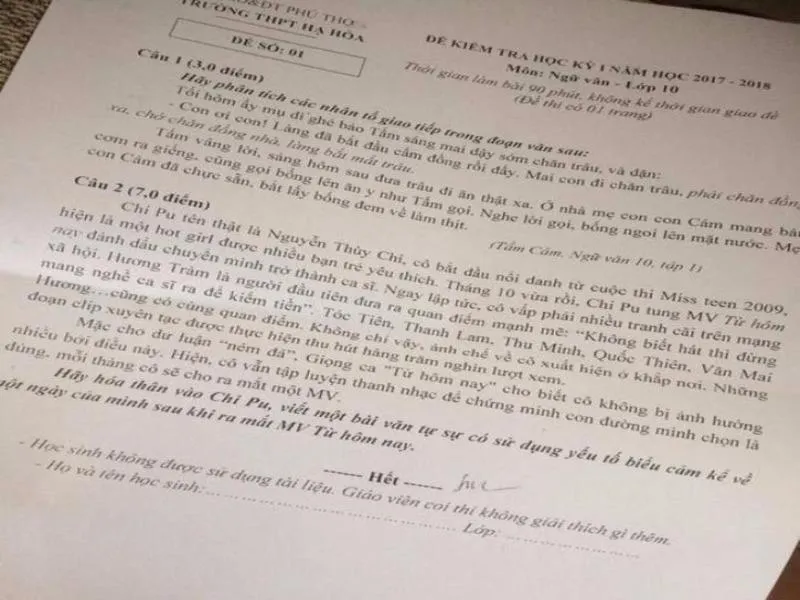 SỞ GD&ĐT PHÚ THỌ
TRƯỜNG THPT HẠ HÒA
ĐỀ SỐ: 01
ĐỀ KIỂM TRA HỌC KỲ I NĂM HỌC 2017 - 2018
Môn: Ngữ văn - Lớp 10
Thời gian làm bài 90 phút, không kể thời gian giao đề
(Đề thi có 01 trang)
Câu 1 (3,0 điểm)
Hãy phân tích các nhân tố giao tiếp trong đoạn văn sau:
Tối hôm ấy mụ dì ghẻ bảo Tấm sáng mai dậy sớm chăn trâu, và dặn:
- Con ơi con! Làng đã bắt đầu cấm đồng rồi đấy. Mai con đi chăn trâu, phải chăn đồng
xa, chớ chăn đồng nhà, làng bắt mất trâu.
Tấm vâng lời, sáng hôm sau đưa trâu đi ăn thật xa. Ở nhà mẹ con con Cám mang bát
cơm ra giếng, cũng gọi bống lên ăn y như Tấm gọi. Nghe lời gọi, bống ngoi lên mặt nước. Mẹ
con Cám đã chực sẵn, bắt lấy bống đem về làm thịt.
(Tấm Cám, Ngữ văn 10, tập 1)
Câu 2 (7,0 điểm)
Chi Pu tên thật là Nguyễn Thùy Chi, cô bắt đầu nổi danh từ cuộc thi Miss teen 2009,
hiện là một hot girl được nhiều bạn trẻ yêu thích. Tháng 10 vừa rồi, Chi Pu tung MV Từ hôm
nay đánh dấu chuyên mình trở thành ca sĩ. Ngay lập tức, cô vấp phải nhiều tranh cãi trên mạng
xã hội. Hương Tràm là người đầu tiên đưa ra quan điểm mạnh mẽ: “Không biết hát thì đừng
mang nghề ca sĩ ra để kiếm tiền”. Tóc Tiên, Thanh Lam, Thu Minh, Quốc Thiên, Văn Mai
Hương…cũng có cùng quan điểm. Không chỉ vậy, ảnh chế về cô xuất hiện ở khắp nơi. Những
đoạn clip xuyên tạc được thực hiện thu hút hàng trăm nghìn lượt xem.
Mặc cho dư luận “ném đá”, Giọng ca "Từ hôm nay" cho biết cô không bị ảnh hưởng
nhiều bởi điều này. Hiện, cô vẫn tập luyện thanh nhạc để chứng minh con đường mình chọn là
đúng, mỗi tháng cô sẽ cho ra mắt một MV.
Hãy hóa thân vào Chi Pu, viết một bài văn tự sự có sử dụng yếu tố biểu cảm kể về
một ngày của mình sau khi ra mắt MV Từ hôm nay.
------ Hết ------
- Học sinh không được sử dụng tài liệu. Giáo viên coi thi không giải thích gì thêm.
- Họ và tên học sinh:…………………………………… Lớp:……………